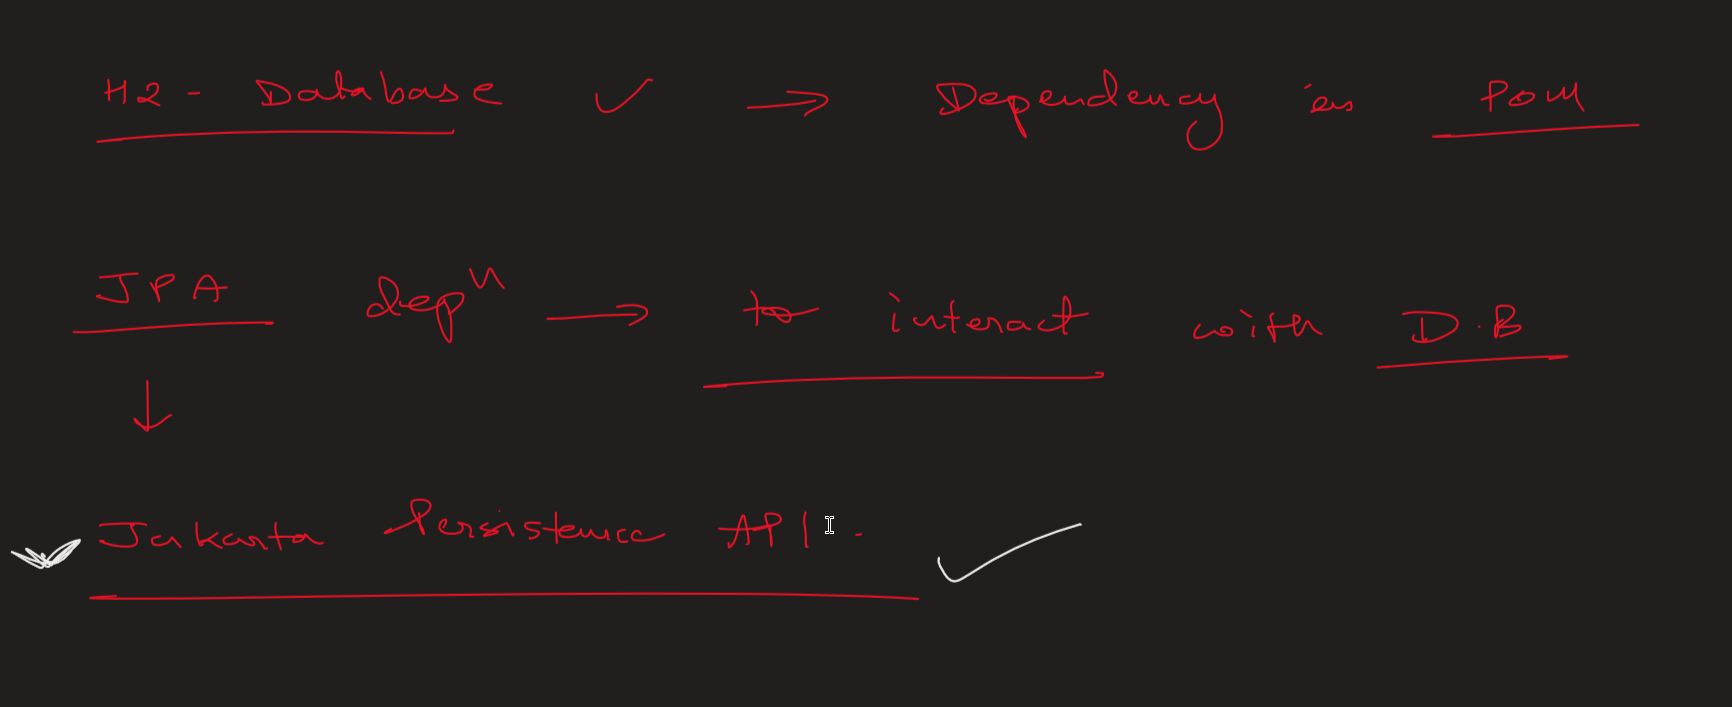 H2 - Database ✓ → Dependency in POM
JPA depn → to interact with D.B
↓
Jakarta Persistence API.